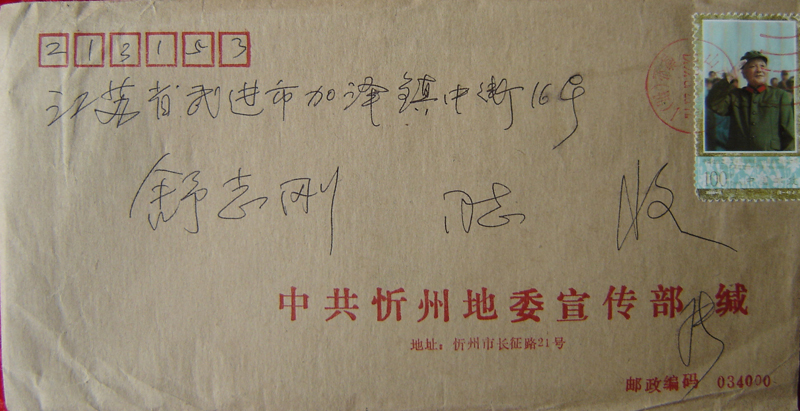 213153
江苏省武进市加泽镇中街16号
舒志刚 同志 收
100
中共忻州地委宣传部 缄
地址：忻州市长征路21号
邮政编码 034000